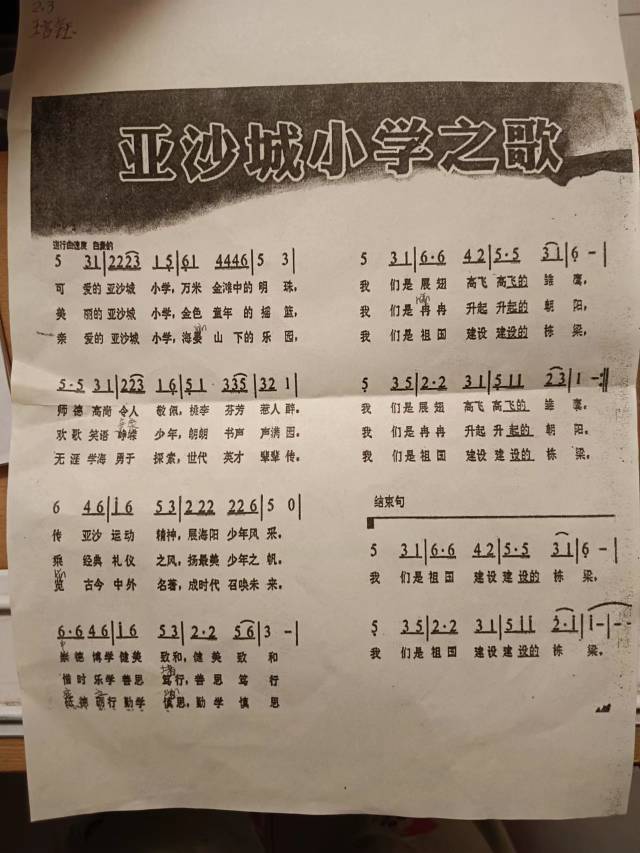 2.3
亚沙城小学之歌
进行曲速度 自豪的
5 31|2223 15|61 4446|5 3|
可 爱的 亚沙城 小学,万米 金滩中的 明 珠,
美 丽的 亚沙城 小学,金色 童年 的 摇 篮,
亲 爱的 亚沙城 小学,海晏 山 下的 乐 园,
5·5 31|223 16|51 335|32 1|
师德 高尚 令人 敬佩,桃李 芬芳 惹人 醉。
欢歌 笑语 峥嵘 少年,朗朗 书声 声满 园。
无涯 学海 勇于 探索,世代 英才 辈辈 传。
6 46|i6 53|222 226|5 0|
传 亚沙 运动 精神,展海阳 少年风 采。
乘 经典 礼仪 之风,扬最美 少年之 帆。
览 古今 中外 名著,成时代 召唤未 来。
6·6 46|i6 53|2·2 56|3 -|
崇德 博学 健美 致和,健美 致 和
惜时 乐学 善思 笃行,善思 笃 行
德 行 勤学 慎思,勤学 慎 思
5 31|6·6 42|5·5 31|6 -|
我 们是 展翅 高飞 高飞的 雏 鹰,
我 们是 冉冉 升起 升起的 朝 阳,
我 们是 祖国 建设 建设的 栋 梁,
5 35|2·2 31|511 23|1 -:‖
我 们是 展翅 高飞 高飞的 雏 鹰。
我 们是 冉冉 升起 升起的 朝 阳。
我 们是 祖国 建设 建设的 栋 梁。
结束句
5 31|6·6 42|5·5 31|6 -|
我 们是 祖国 建设 建设的 栋 梁,
5 35|2·2 31|5ii 2·i|i - | - -
我 们是 祖国 建设 建设的 栋 梁。